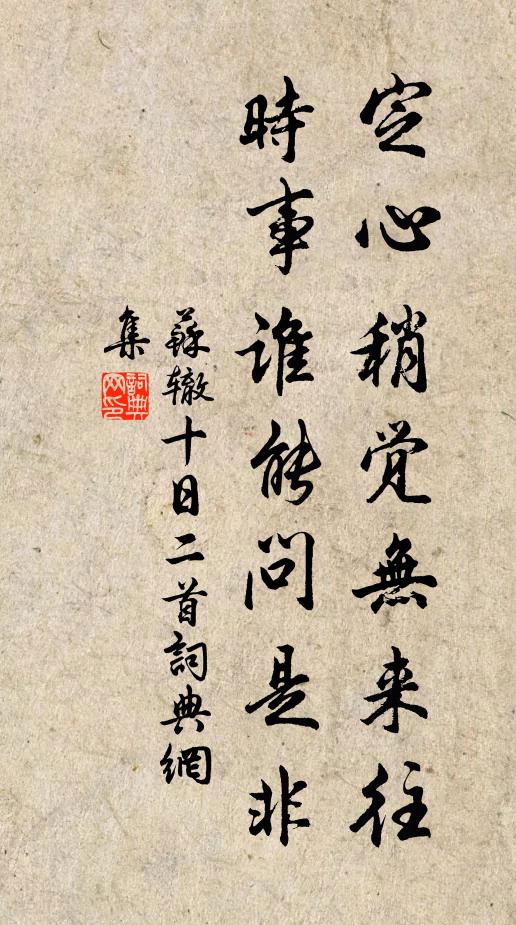 定心稍觉無来往
時事谁能問是非
蘇辙十日二首詞典網
集
詞典
网印